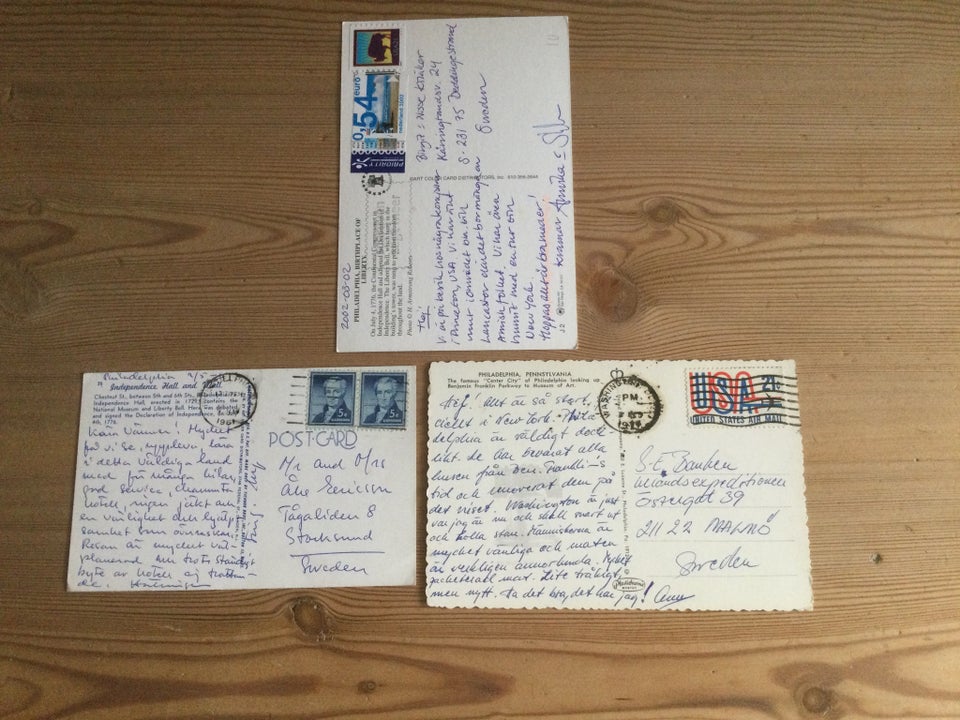 2002-03-02
PHILADELPHIA, BIRTHPLACE OF
LIBERTY.
On July 4, 1776, the Continental Congress met in
Independence Hall and adopted the Declaration of
Independence. The Liberty Bell, which hung in the
building's tower, was rung to proclaim freedom
throughout the land.
Photo © H. Armstrong Roberts
ART COLOR CARD DISTRIBUTORS, Inc. 610-
PRIORITY
0,54 euro
nederland 2002
Hej
Vi är på besök hos några kompisar
i Princeton, USA. Vi har åkt
runt i området bla. till
Lancaster där det bor många
Amishfolket. Vi har även
hunnit med en tur till
New York.
Hoppas allt är bra med er!
Kramar Annika &
Birgit & Nisse
24
S-231 75 Beddingestrand
Sweden
J 2
Philadelphia
Independence Hall and Mall
Chestnut St., between 5th and 6th Sts.
Independence Hall, erected in 1729, contains the
National Museum and Liberty Bell. Here was debated
and signed the Declaration of Independence, on July
4th, 1776.
Kära Vänner! Mycket
få vi se, uppleva, lära
i detta väldiga land
med för många bilar,
god service, charmiga
hotell, ingen jäkt
en vänlighet och hjälp
samhet som överraskar.
Resan är mycket väl
planerad men trots ständigt
byte av hotell ej
POST CARD
5¢
5¢
Mr and Mrs
Åke Ericson
Tågaliden 8
Stocksund
Sweden
PHILADELPHIA, PENNSYLVANIA
The famous "Center City" of Philadelphia looking up
Benjamin Franklin Parkway to Museum of Art.
WASHINGTON
PM
USA
21¢
UNITED STATES AIR MAIL
Hej! Allt är så stort,
coolt i New York. Phila-
delphia är väldigt dock
likt. de har bevarat alla
husen från Ben. Franklins
tid och renoverat dem på
det viset. Washington är just
var jag är nu och skall snart ut
och kolla stan. Människorna är
mycket vänliga och maten
är verkligen annorlunda. Mycket
mat. Lite tråkigt
men nytt. Ha det bra, det har jag! Ann
S-E-Banken
Utlandsexpeditionen
Östergat 39
211 22 MALMÖ
Sweden